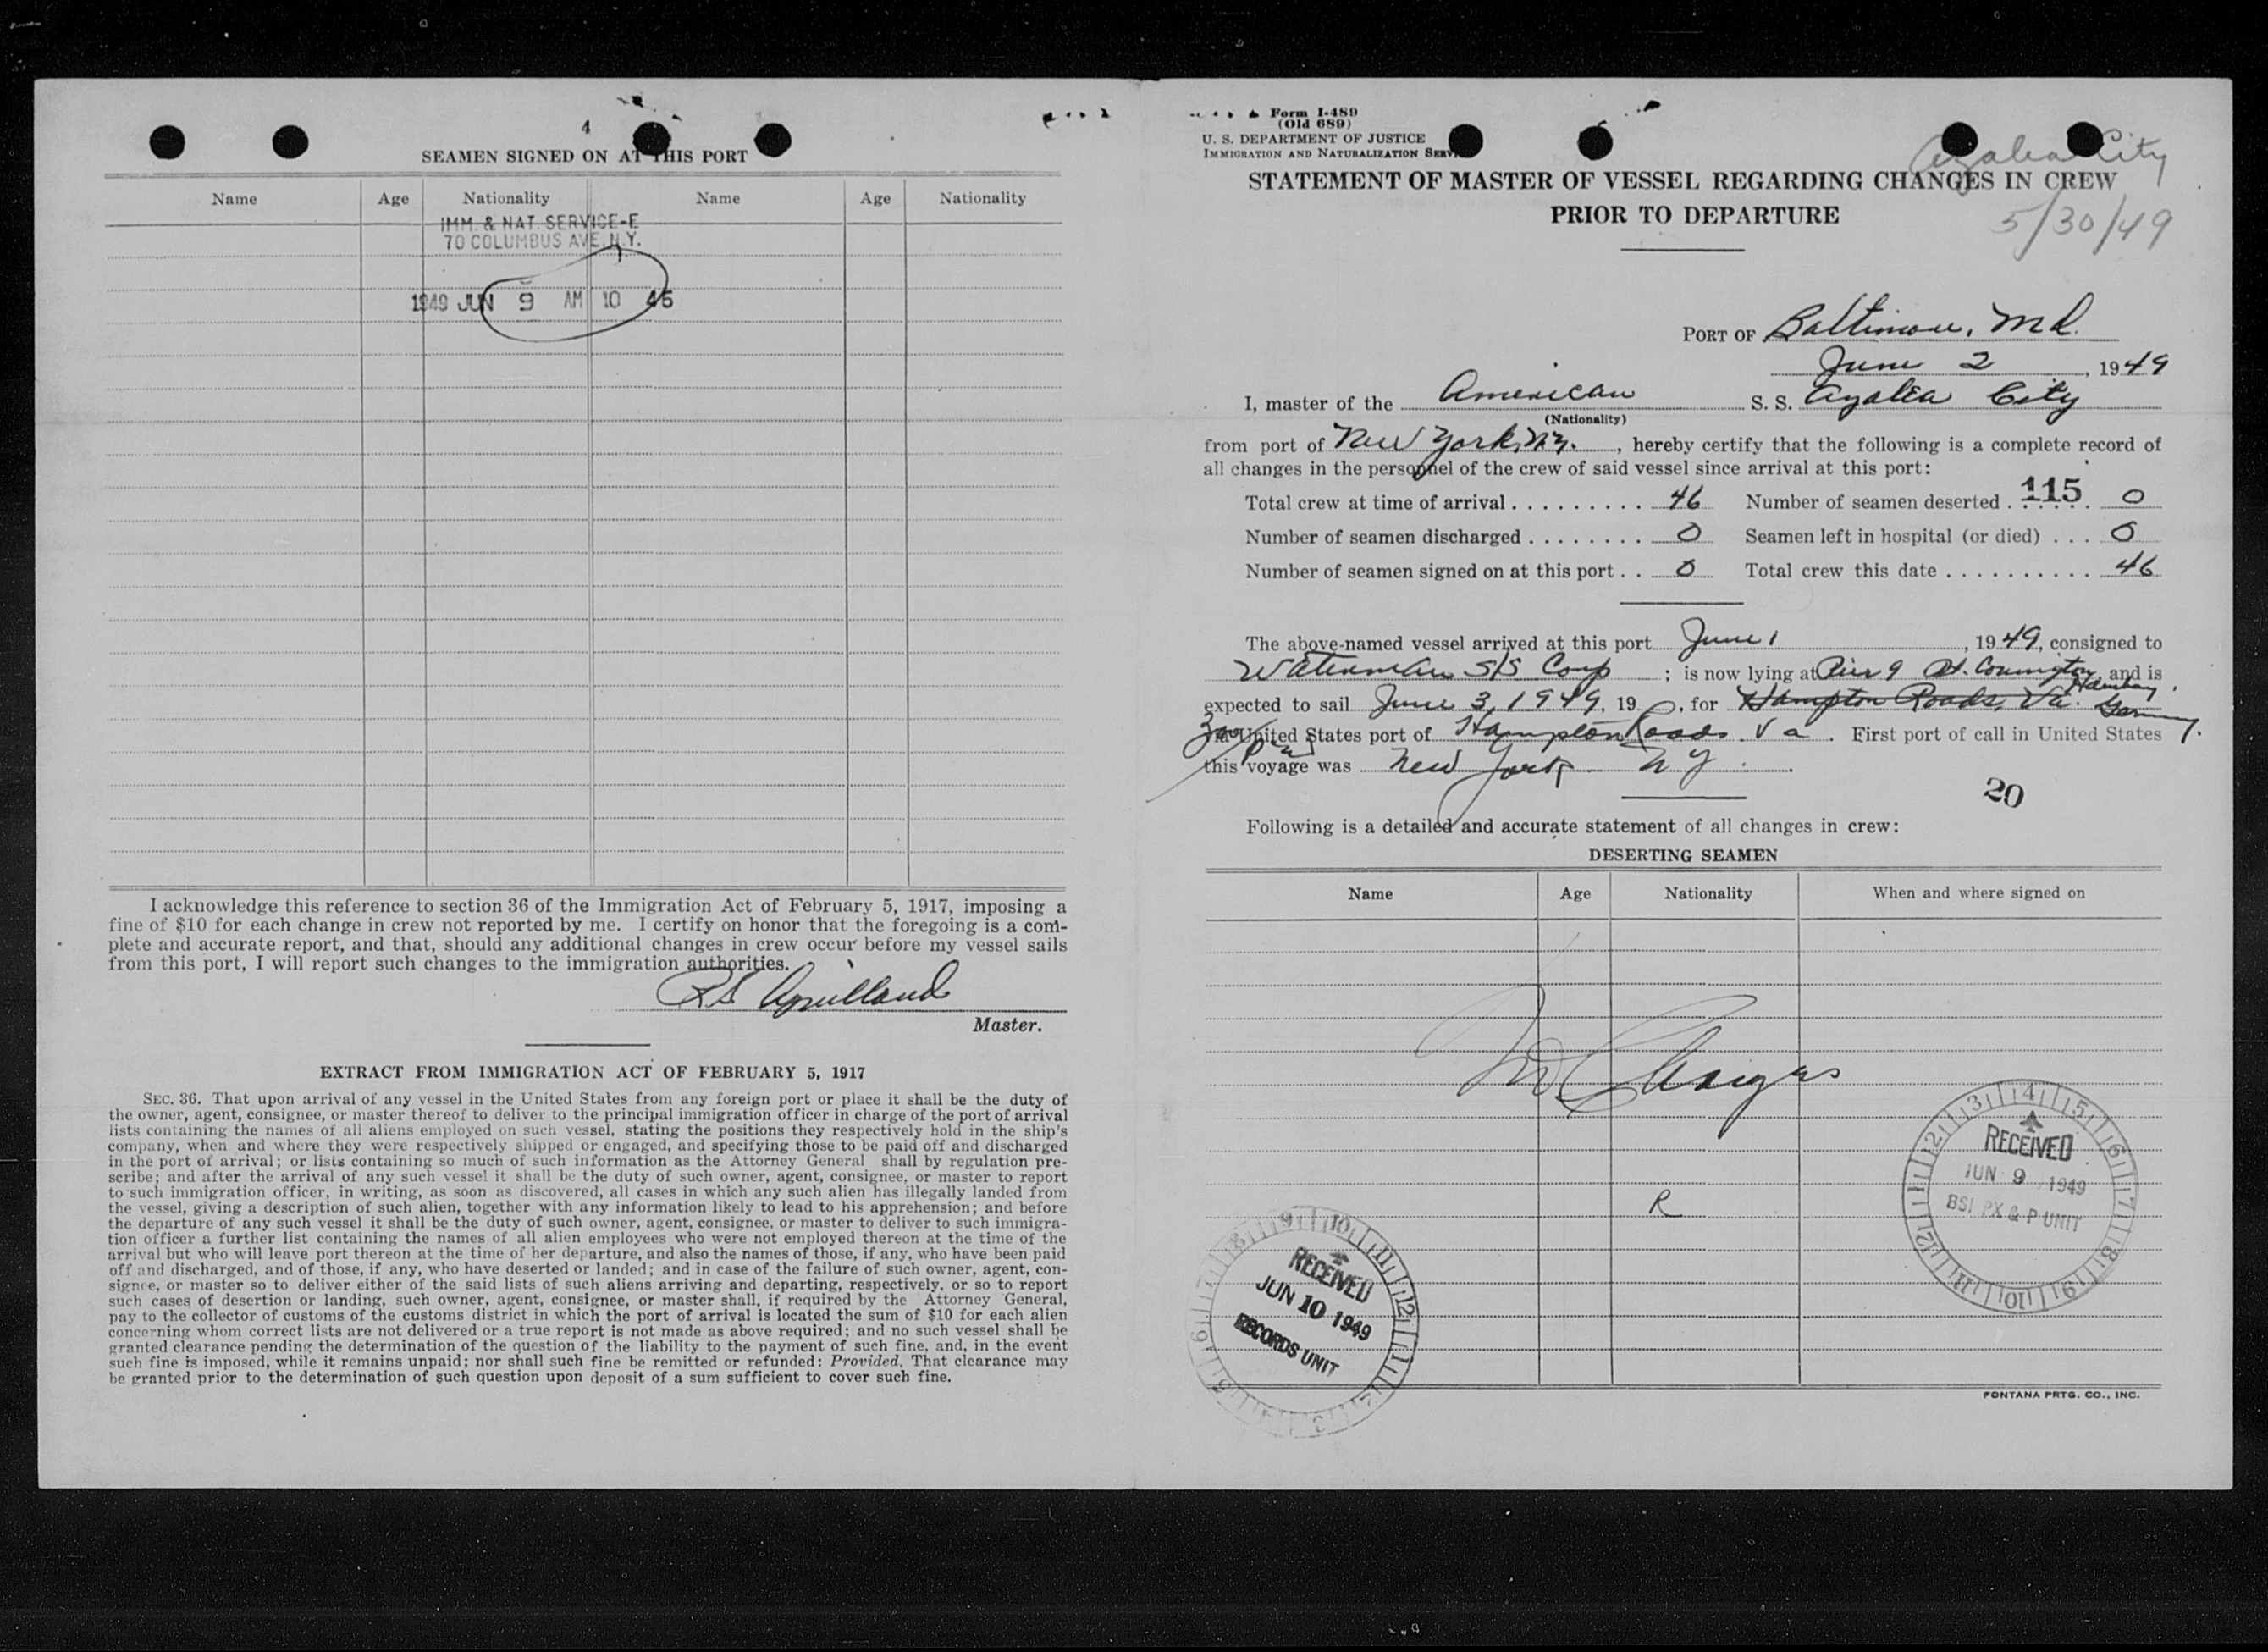 4
SEAMEN SIGNED ON AT THIS PORT
Name Age Nationality Name Age Nationality
IMM. & NAT. SERVICE-E
70 COLUMBUS AVE. N.Y.
1949 JUN 9 AM 10 45
I acknowledge this reference to section 36 of the Immigration Act of February 5, 1917, imposing a
fine of $10 for each change in crew not reported by me. I certify on honor that the foregoing is a com-
plete and accurate report, and that, should any additional changes in crew occur before my vessel sails
from this port, I will report such changes to the immigration authorities.
Master.
EXTRACT FROM IMMIGRATION ACT OF FEBRUARY 5, 1917
SEC. 36. That upon arrival of any vessel in the United States from any foreign port or place it shall be the duty of
the owner, agent, consignee, or master thereof to deliver to the principal immigration officer in charge of the port of arrival
lists containing the names of all aliens employed on such vessel, stating the positions they respectively hold in the ship's
company, when and where they were respectively shipped or engaged, and specifying those to be paid off and discharged
in the port of arrival; or lists containing so much of such information as the Attorney General shall by regulation pre-
scribe; and after the arrival of any such vessel it shall be the duty of such owner, agent, consignee, or master to report
to such immigration officer, in writing, as soon as discovered, all cases in which any such alien has illegally landed from
the vessel, giving a description of such alien, together with any information likely to lead to his apprehension; and before
the departure of any such vessel it shall be the duty of such owner, agent, consignee, or master to deliver to such immigra-
tion officer a further list containing the names of all alien employees who were not employed thereon at the time of the
arrival but who will leave port thereon at the time of her departure, and also the names of those, if any, who have been paid
off and discharged, and of those, if any, who have deserted or landed; and in case of the failure of such owner, agent, con-
signee, or master so to deliver either of the said lists of such aliens arriving and departing, respectively, or so to report
such cases of desertion or landing, such owner, agent, consignee, or master shall, if required by the Attorney General,
pay to the collector of customs of the customs district in which the port of arrival is located the sum of $10 for each alien
concerning whom correct lists are not delivered or a true report is not made as above required; and no such vessel shall be
granted clearance pending the determination of the question of the liability to the payment of such fine, and, in the event
such fine is imposed, while it remains unpaid; nor shall such fine be remitted or refunded: Provided, That clearance may
be granted prior to the determination of such question upon deposit of a sum sufficient to cover such fine.
Form I-489
(Old 689)
U. S. DEPARTMENT OF JUSTICE
IMMIGRATION AND NATURALIZATION SERV
Azalea City
STATEMENT OF MASTER OF VESSEL REGARDING CHANGES IN CREW
PRIOR TO DEPARTURE
5/30/49
PORT OF Baltimore, Md.
June 2, 1949
I, master of the American S. S. Azalea City
(Nationality)
from port of New York, N.Y., hereby certify that the following is a complete record of
all changes in the personnel of the crew of said vessel since arrival at this port:
Total crew at time of arrival . . . . . . . . . 46 Number of seamen deserted . . . . . . 115 0
Number of seamen discharged . . . . . . . . 0 Seamen left in hospital (or died) . . . 0
Number of seamen signed on at this port . . 0 Total crew this date . . . . . . . . . . 46
The above-named vessel arrived at this port June 1, 1949, consigned to
Waterman S/S Corp; is now lying at Pier 9 Pt. Covington, and is
expected to sail June 3, 1949, 19 , for Hampton Roads, Va. Hamburg Germany
via United States port of Hampton Roads Va. First port of call in United States
this voyage was New York N Y.
20
Following is a detailed and accurate statement of all changes in crew:
DESERTING SEAMEN
Name Age Nationality When and where signed on
No Changes
R
RECEIVED
JUN 9 1949
BSI PX & P UNIT
RECEIVED
JUN 10 1949
RECORDS UNIT
FONTANA PRTG. CO., INC.